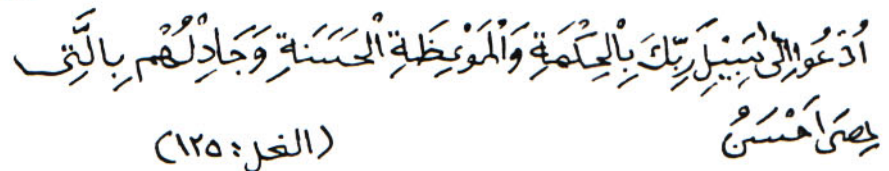 اُدْعُوْا اِلٰى سَبِيْلِ رَبِّكَ بِالْحِكْمَةِ وَالْمَوْعِظَةِ الْحَسَنَةِ وَجَادِلْهُمْ بِالَّتِى
هِىَ اَحْسَنُ (النحل: ١٢٥)